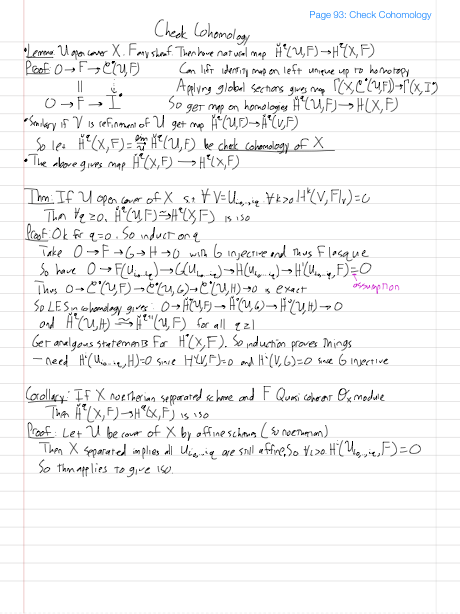 Page 93: Check Cohomology
Check Cohomology
• Lemma: U open cover X. F any sheaf. Then have natural map Ȟ^q(U,F)→H^q(X,F)
Proof: 0→F→C^•(U,F) Can lift identity map on left unique up to homotopy
|| ↓ Applying global sections gives map Γ(X,C^•(U,F))→Γ(X,I^•)
0→F→I^• So get map on homologies Ȟ^q(U,F)→H(X,F)
• Similarly if V is refinement of U get map Ȟ^q(U,F)→Ȟ^q(V,F)
So let Ȟ^q(X,F)= Ȟ^q(U,F) be check cohomology of X
• The above gives map Ȟ^q(X,F)→H^q(X,F)
Thm: If U open cover of X s.t ∀ V=U_{i_0...i_q} ∀k>0 H^k(V,F|_V)=0
Then ∀q≥0, Ȟ^q(U,F)→H^q(X,F) is iso
Proof: Ok for q=0. So induct on q
Take 0→F→G→H→0 with G injective and thus Flasque
So have 0→F(U_{i_0...i_q})→G(U_{i_0...i_q})→H(U_{i_0...i_q})→H^1(U_{i_0...i_q},F)=0
assumption
Thus 0→C^•(U,F)→C^•(U,G)→C^•(U,H)→0 is exact
So LES in cohomology gives: 0→Ȟ^0(U,F)→Ȟ^0(U,G)→Ȟ^0(U,H)→0
and Ȟ^q(U,H)→Ȟ^{q+1}(U,F) for all q≥1
Get analgous statements for H^•(X,F). So induction proves things
– need H^i(U_{i_0...i_q},H)=0 since H^i(V,F)=0 and H^i(V,G)=0 since G injective
Corollary: If X noetherian sepparated scheme and F Quasi coherent O_X module
Then Ȟ^q(X,F)→H^q(X,F) is iso
Proof: Let U be cover of X by affine schemes (so noetherian)
Then X separated implies all U_{i_0,...,i_q} are still affine, So ∀i>0 H^i(U_{i_0,...,i_q},F)=0
So thm applies to give iso.